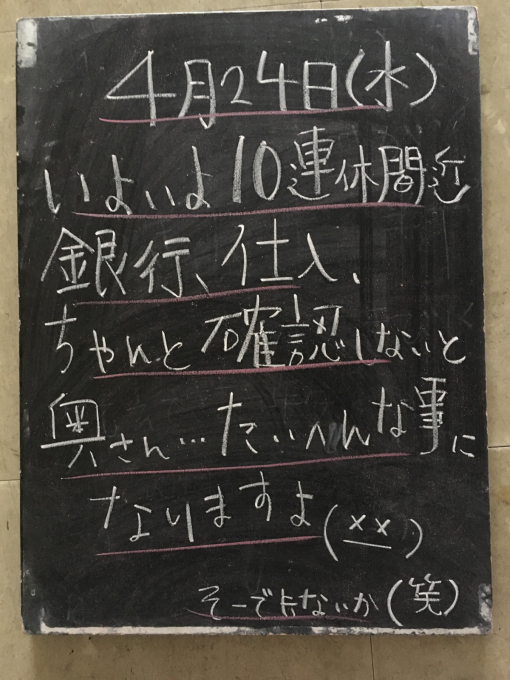 4月24日(水)
いよいよ10連休間近
銀行、仕入、
ちゃんと確認しないと
奥さん…たいへんな事に
なりますよ(××)
そーでもないか(笑)